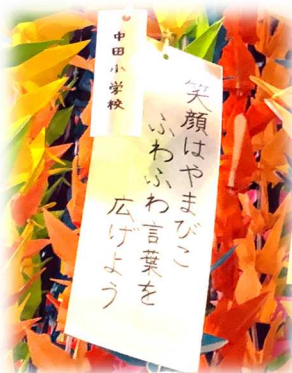 中田小学校
笑顔はやまびこ
ふわふわ言葉を
広げよう